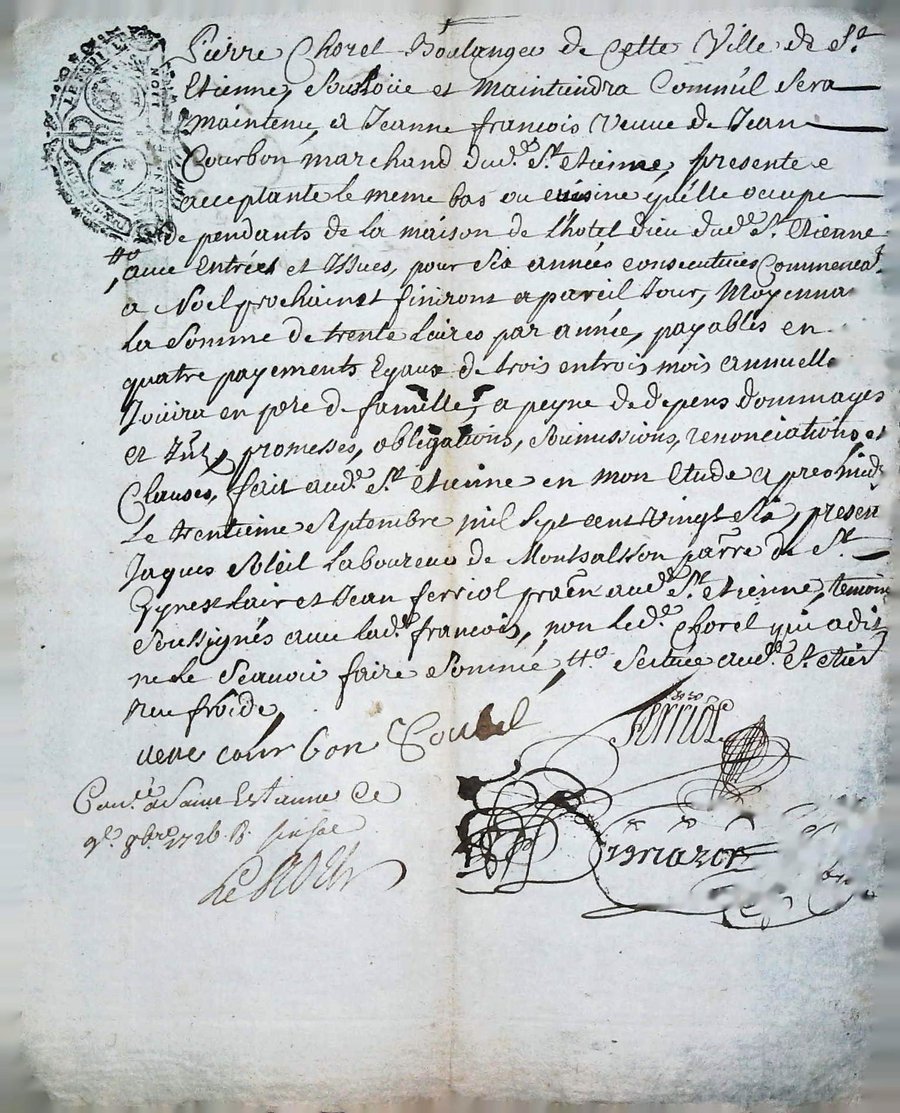 Pierre Chorel Boulanger de Cette Ville de St
Etienne, Soussoüe et Maintiendra Comm'il Sera
maintenu, a Jeanne françois Veuue de Jean
Courbon marchand dud.t St etienne, presente e
acceptante le meme bas ou cuisine qu'elle occupe
de pendants de la maison de l'hotel dieu dud.t St Etienne
auec Entrées et Issues, pour Six années consecutiues Commencat
a Noel prochain et finiront a pareil Jour, Moyenna
La Somme de trente Liures par année, payables en
quatre payements Egaux de trois entrois mois annuelle
Joüira en pere de famille, a peyne de depens dommages
et promesses, obligations, Soumissions, renonciations, et
Clauses, fait aud.t St etienne en mon Etude apres midy
Le trentieme Septembre mil Sept cent Vingt Six, presen
Jaques Soleil Laboureur de Montsalsson parre de St
Gynest Lair et Jean ferriol praën aud.t St etienne, temoin
Soussignés auec lad.t françois, non led.t Chorel qui a dit
ne le Scauoir faire Sommé, Scituée aud.t St etien
rue froide,
ueue cour bon
ferriol
Con.le a Saint Estienne Ce
1726